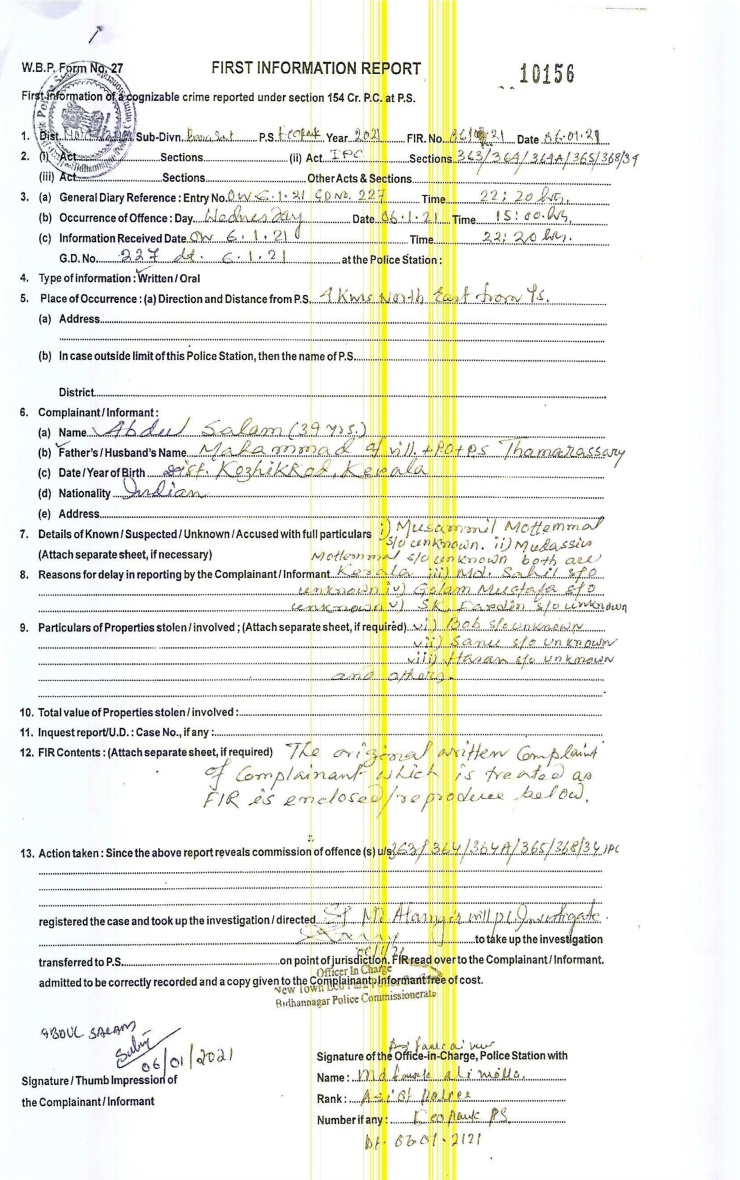 W.B.P. Form No. 27
FIRST INFORMATION REPORT
10156
First Information of a cognizable crime reported under section 154 Cr. P.C. at P.S.
1. Dist. Sub-Divn. P.S. Year 2021 FIR. No. Date 06.01.21
2. (i) Act Sections (ii) Act IPC Sections 363/364/364A/365/368/34
(iii) Act Sections Other Acts & Sections
3. (a) General Diary Reference : Entry No. 6.1.21 GD No. 227 Time 22:20 hrs.
(b) Occurrence of Offence : Day Wednesday Date 06.1.21 Time 15:00 hrs
(c) Information Received Date 6.1.21 Time 22:20 hrs.
G.D. No. 227 dt. 6.1.21 at the Police Station :
4. Type of information : Written / Oral
5. Place of Occurrence : (a) Direction and Distance from P.S. Kms North East from Ps.
(a) Address
(b) In case outside limit of this Police Station, then the name of P.S.
District
6. Complainant / Informant :
(a) Name Abdul Salam (39 yrs.)
(b) Father's / Husband's Name Mahammad of vill.+PO+PS Thamarassary
(c) Date / Year of Birth Dist. Kozhikkod, Kerala
(d) Nationality Indian
(e) Address
7. Details of Known / Suspected / Unknown / Accused with full particulars i) Musammil Mottemmal
s/o unknown. ii) Mudassir
(Attach separate sheet, if necessary) Mottemmal s/o unknown both are
8. Reasons for delay in reporting by the Complainant / Informant Kerala iii) Md. Sahil s/o
unknown iv) Golam Mustafa s/o
unknown v) Sk s/o unknown
9. Particulars of Properties stolen / involved ; (Attach separate sheet, if required) vi) Bob s/o unknown
vii) Sanu s/o unknown
viii) Hasan s/o unknown
and others.
10. Total value of Properties stolen / involved :
11. Inquest report/U.D. : Case No., if any :
12. FIR Contents : (Attach separate sheet, if required) The original written Complaint
of Complainant which is treated as
FIR is enclosed/reproduce below.
13. Action taken : Since the above report reveals commission of offence (s) u/s 363/364/364A/365/368/34 IPC
registered the case and took up the investigation / directed SI Alamgir will pl. Investigate.
to take up the investigation
transferred to P.S. on point of jurisdiction. FIR read over to the Complainant / Informant.
Officer In Charge
admitted to be correctly recorded and a copy given to the Complainant / Informant free of cost.
Bidhannagar Police Commissionerate
ABDUL SALAM
06/01/2021
Signature of the Office-in-Charge, Police Station with
Signature / Thumb Impression of
Name :
the Complainant / Informant
Rank : ASI of police
Number if any : Ecopark PS.